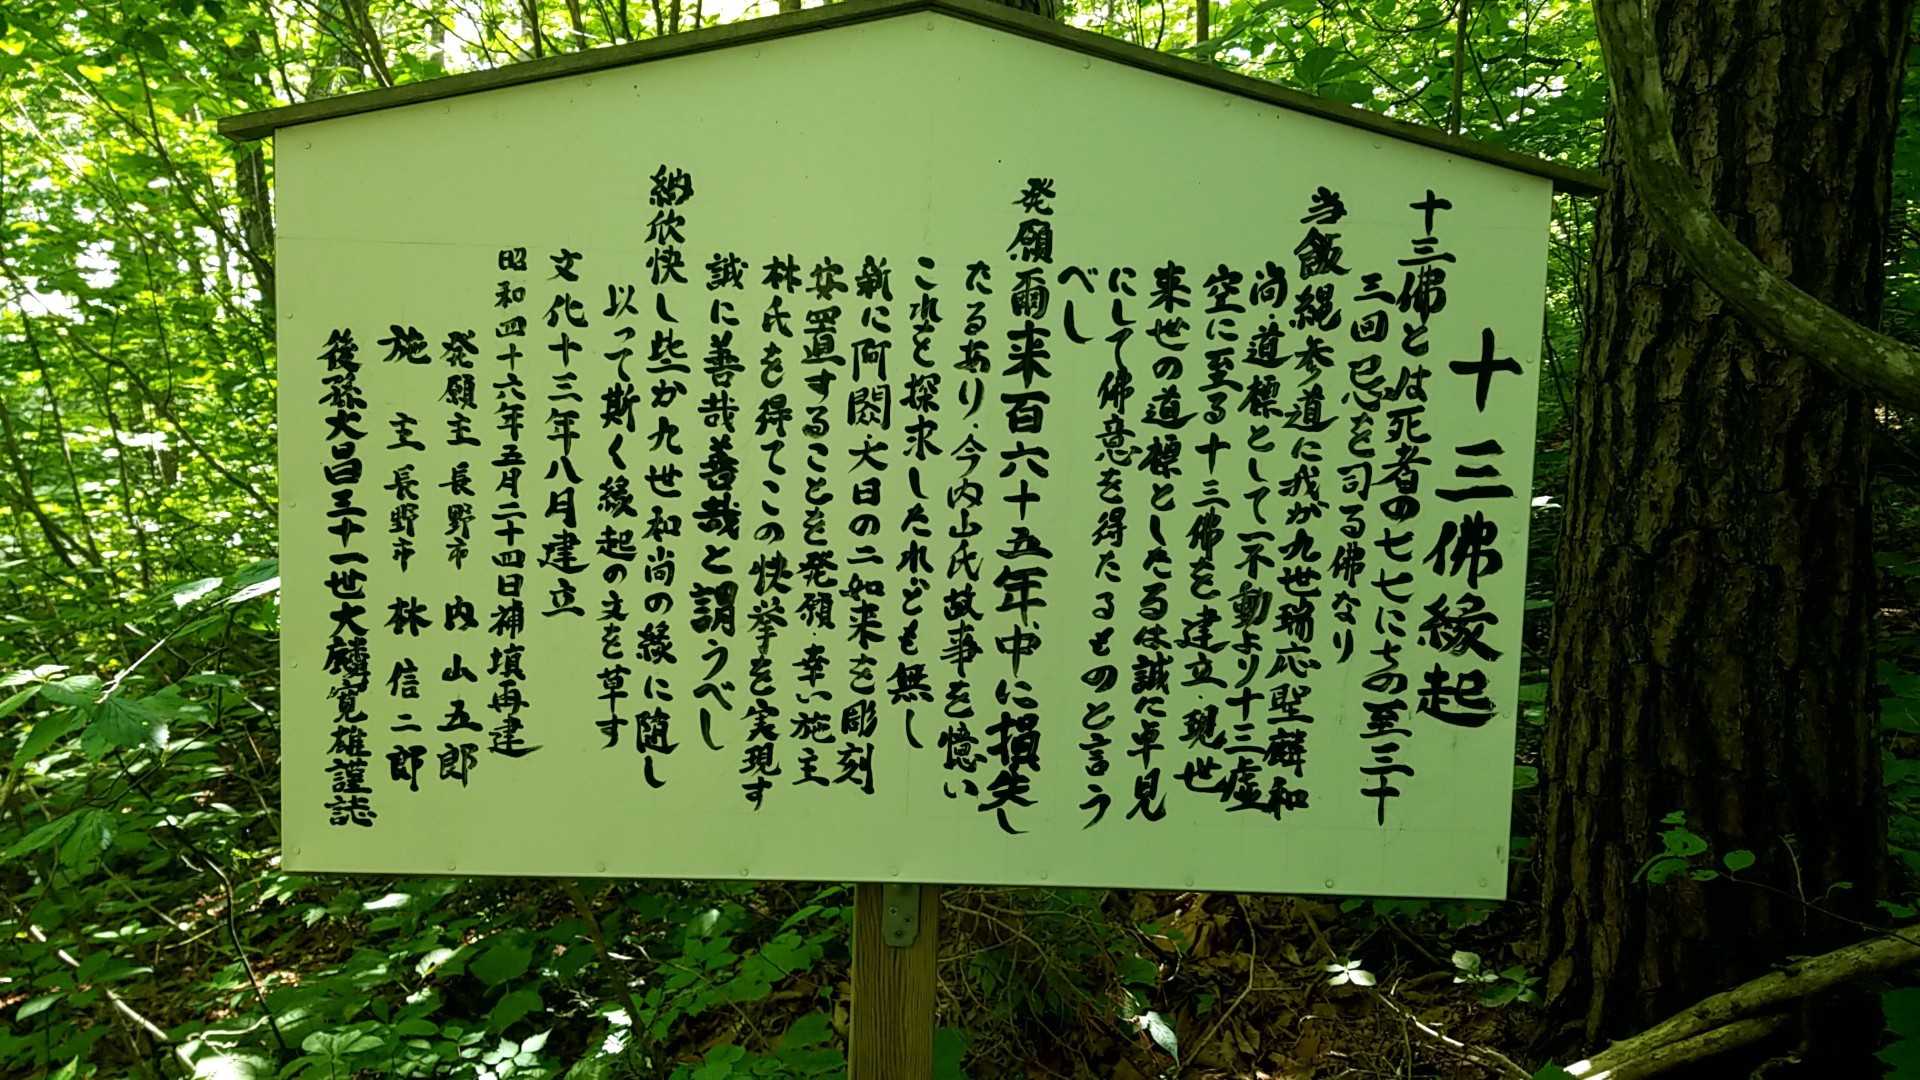 十三佛縁起
十三佛とは死者の七七にちの至三十
三回忌を司る佛なり
当飯縄参道に我が九世瑞応聖麟和
尚・道標として一不動より十三虚
空に至る十三佛を建立・現世
来世の道標としたるは誠に卓見
にして佛意を得たるものと言う
べし
発願爾来百六十五年・中に損失し
たるあり・今内山氏故事を憶い
これを探求したれども無し
新に阿閦・大日の二如来を彫刻
安置することを発願・幸い施主
林氏を得てこの快挙を実現す
誠に善哉善哉と謂うべし
納欣快し些か九世和尚の縁に随し
以って斯く縁起の文を草す
文化十三年八月建立
昭和四十六年五月二十四日補填再建
発願主 長野市 内山五郎
施主 長野市 林信二郎
後孫大昌三十一世大麟寛雄謹誌